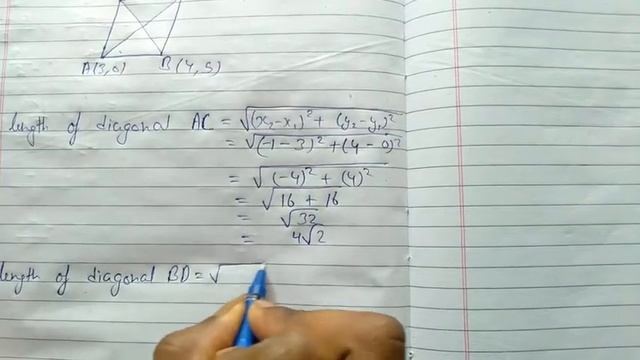 A(3,0) B(4,5)
length of diagonal AC = √(x₂-x₁)² + (y₂-y₁)²
= √(-1-3)² + (4-0)²
= √(-4)² + (4)²
= √16 + 16
= √32
= 4√2
length of diagonal BD = √